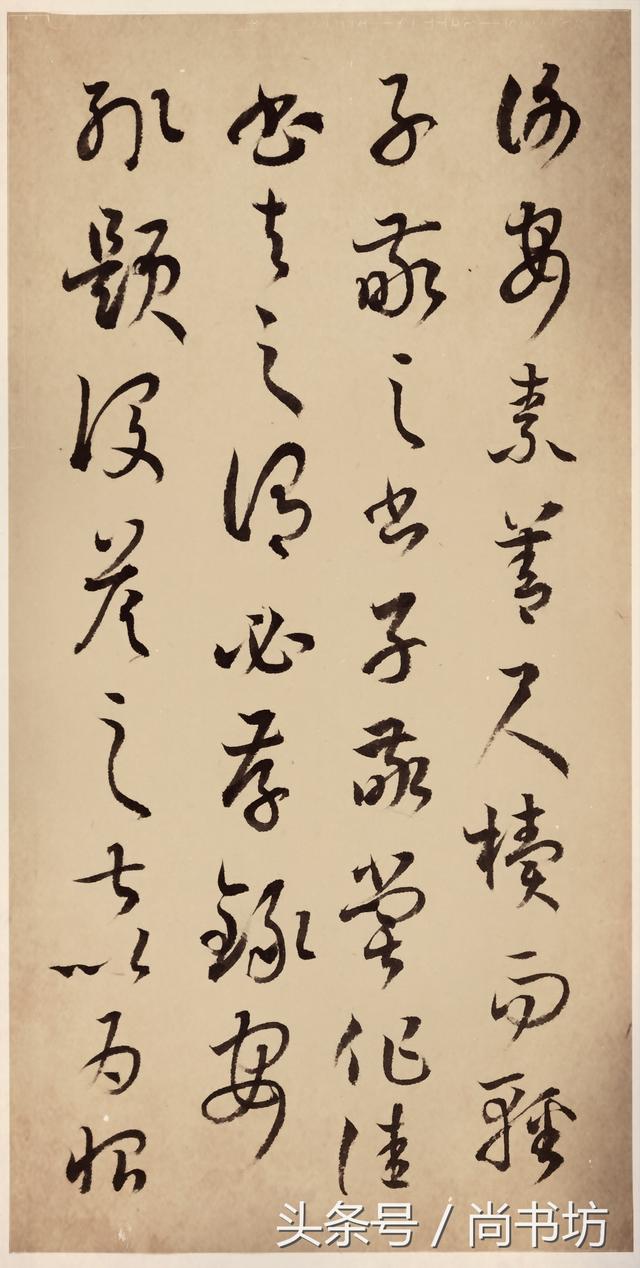 謝安素善尺櫝而輕
子敬之書子敬嘗作佳
書與之謂必存錄安
輒題後答之甚以為恨
头条号 / 尚书坊